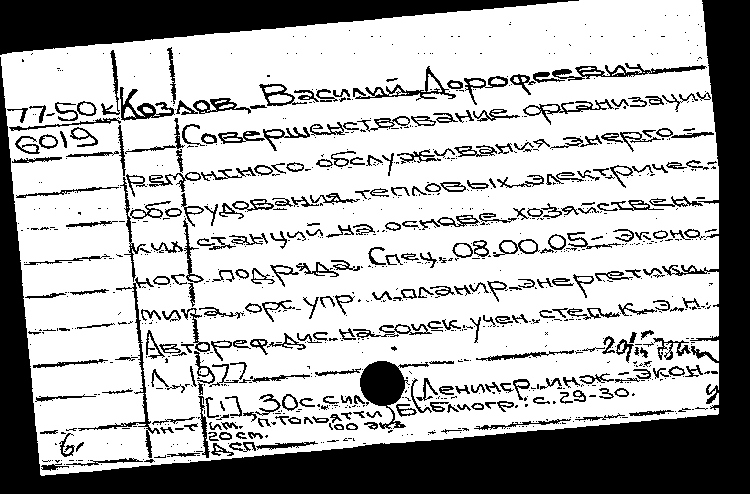 77-50к Козлов, Василий Дорофеевич
6019 Совершенствование организации
ремонтного обслуживания энерго-
оборудования тепловых электричес-
ких станций на основе хозяйствен-
ного подряда. Спец. 08.00.05 - Эконо-
мика, орг. упр. и планир. энергетики.
Автореф. дис. на соиск. учен. степ. к. э. н.
Л., 1977.
20/III
[1], 30 с. с ил. (Ленингр. инж.-экон.
ин-т им. П. Тольятти) Библиогр.: с. 29-30.
20 см. 100 экз.
ДСП
б.